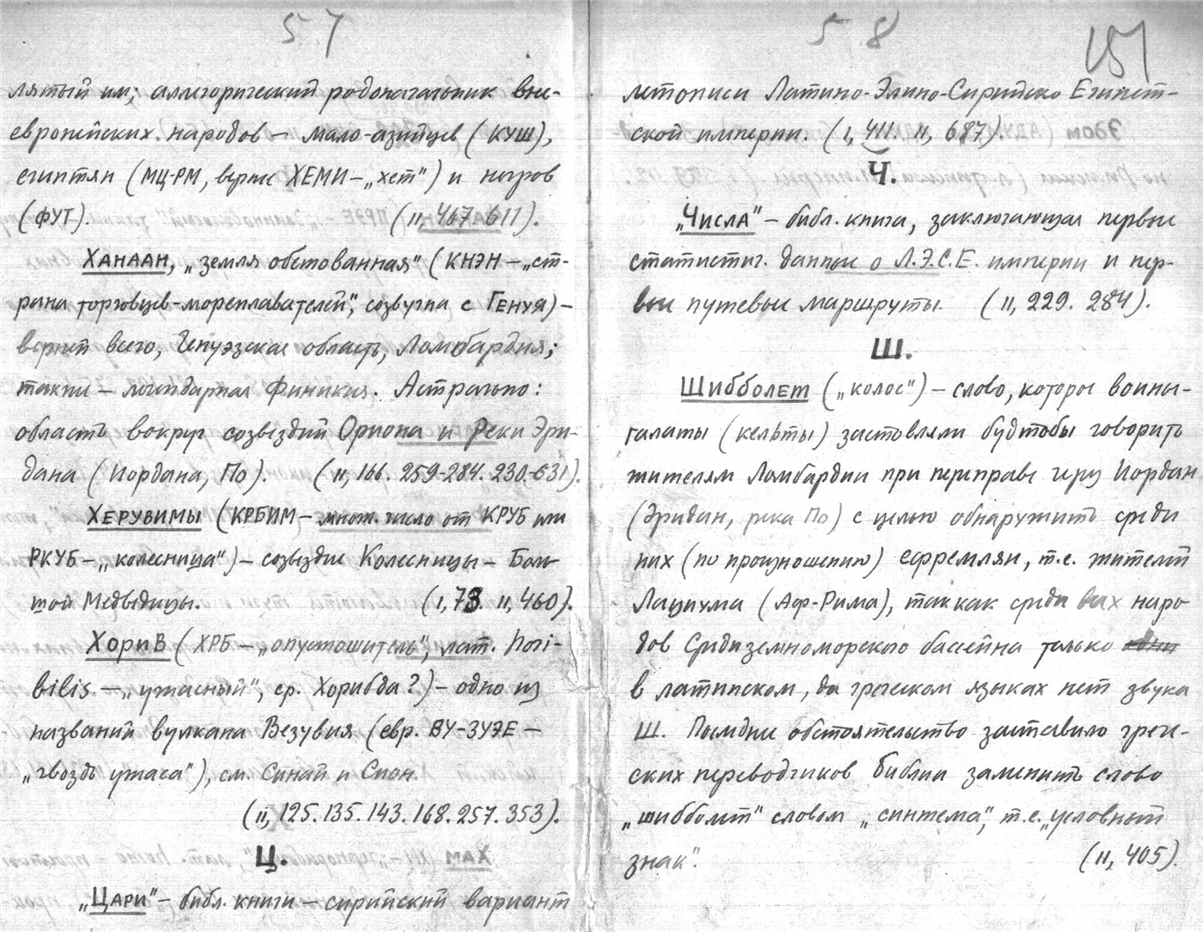 57
лятый им; аллегорический родоначальник вне-
европейских народов – мало-азийцев (КУШ),
египтян (МЦ-РМ, вернее ХЕМИ – „хет") и негров
(ФУТ). (II, 467. 611).
ХАНААН, „земля обетованная" (КНЭН – „ст-
рана торговцев-мореплавателей", созвучна с ГЕНУЯ) –
вернее всего, Генуэзская область, Ломбардия;
также – легендарная Финикия. Астрально:
область вокруг созвездий Ориона и реки Эри-
дана (Иордана, По). (II, 166. 259-284. 230-631).
ХЕРУВИМЫ (КРБИМ – множ. число от КРУБ или
РКУБ – „колесница") – созвездие Колесницы – Боль-
шой Медведицы. (I, 73. II, 460).
ХОРИВ (ХРБ – „опустошитель", лат. hori-
bilis – „ужасный", ср. Харибда?) – одно из
названий вулкана Везувия (евр. ВУ-ЗУЭЕ –
„гвоздь ужаса"), см. Синай и Сион.
(II, 125. 135. 143. 168. 257. 353).
Ц.
„ЦАРИ" – библ. книги – сирийский вариант
58
151
летописи Латино-Элино-Сирийско Египет-
ской империи. (I, 411. II, 687).
Ч.
„ЧИСЛА" – библ. книга, заключающая первые
статистич. данные о Л.Э.С.Е. империи и пер-
вые путевые маршруты. (II, 229. 284).
Ш.
ШИББОЛЕТ („колос") – слово, которое воины-
галаты (кельты) заставляли будтобы говорить
жителям Ломбардии при переправе через Иордан
(Эридан, река По) с целью обнаружить среди
них (по произношению) ефремлян, т.е. жителей
Лациума (Аф-Рима), так как среди всех наро-
дов Средиземноморского бассейна только
в латинском, да греческом языках нет звука
Ш. Последнее обстоятельство заставило грече-
ских переводчиков библии заменить слово
„шибболет" словом „синтема", т.е. „условный
знак". (II, 405).